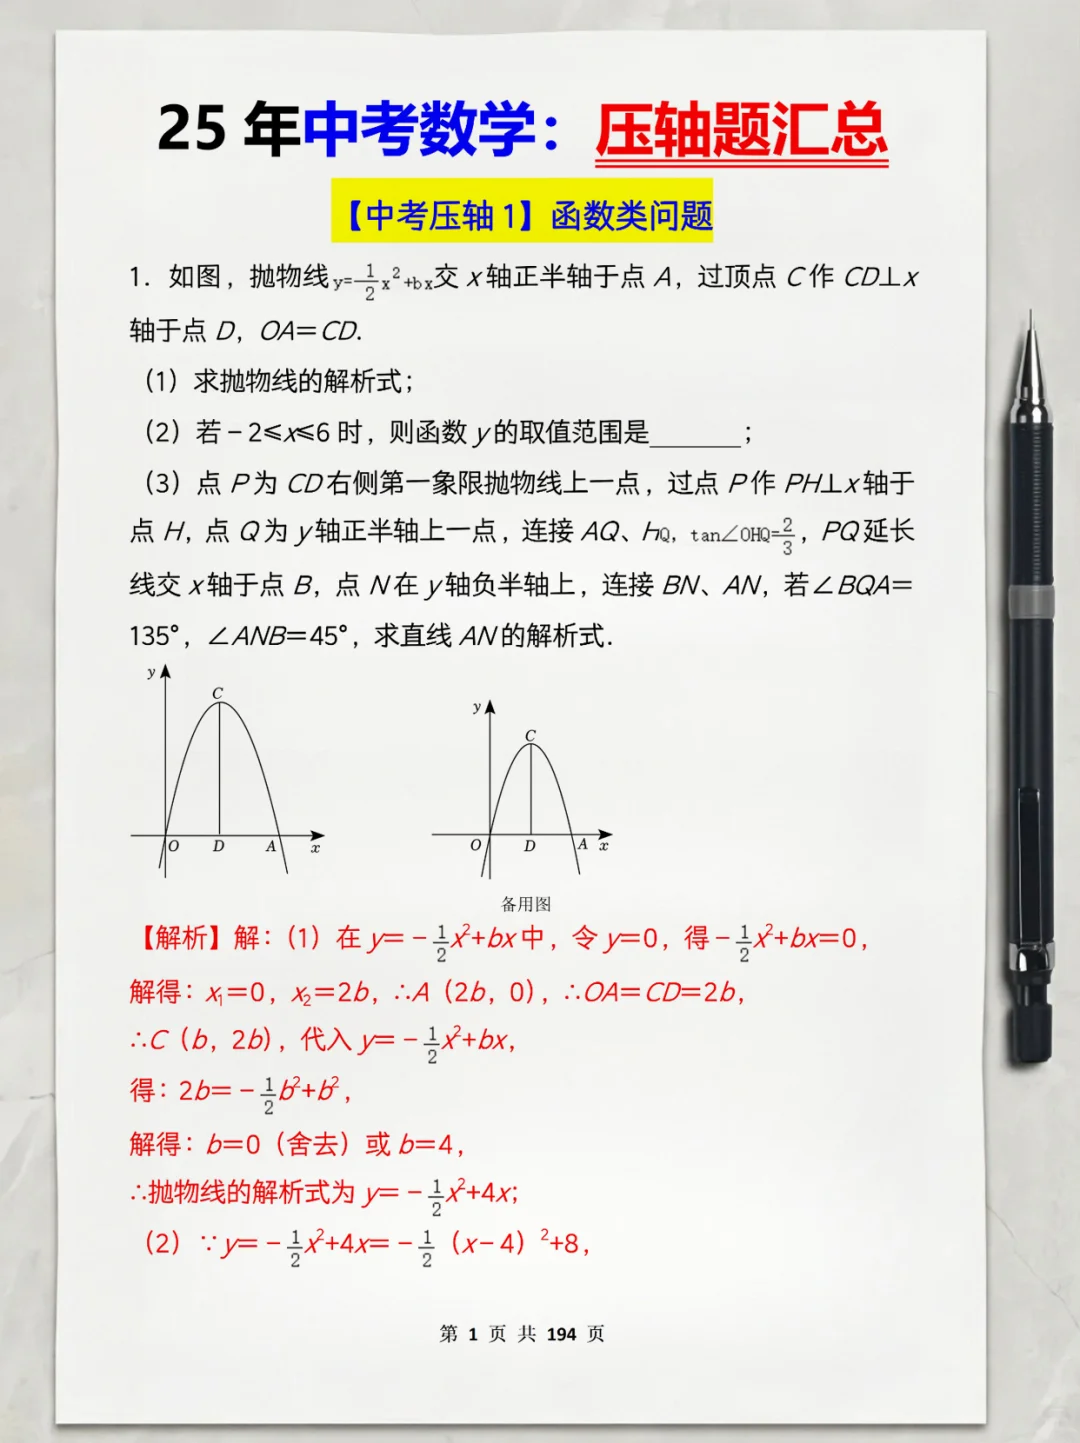 25 年中考数学：压轴题汇总
【中考压轴 1】函数类问题
1．如图，抛物线y=-\frac{1}{2}x²+bx交 x 轴正半轴于点 A，过顶点 C 作 CD⊥x
轴于点 D，OA＝CD.
（1）求抛物线的解析式；
（2）若－2≤x≤6 时，则函数 y 的取值范围是______；
（3）点 P 为 CD 右侧第一象限抛物线上一点，过点 P 作 PH⊥x 轴于
点 H，点 Q 为 y 轴正半轴上一点，连接 AQ、HQ，tan∠OHQ=\frac{2}{3}，PQ 延长
线交 x 轴于点 B，点 N 在 y 轴负半轴上，连接 BN、AN，若∠BQA＝
135°，∠ANB＝45°，求直线 AN 的解析式．
y C O D A x
y C O D A x
备用图
【解析】解：（1）在 y＝－\frac{1}{2}x²+bx 中，令 y＝0，得－\frac{1}{2}x²+bx＝0，
解得：x₁＝0，x₂＝2b，∴A（2b，0），∴OA＝CD＝2b，
∴C（b，2b），代入 y＝－\frac{1}{2}x²+bx，
得：2b＝－\frac{1}{2}b²+b²，
解得：b＝0（舍去）或 b＝4，
∴抛物线的解析式为 y＝－\frac{1}{2}x²+4x；
（2）∵y＝－\frac{1}{2}x²+4x＝－\frac{1}{2}（x－4）²+8，
第 1 页 共 194 页